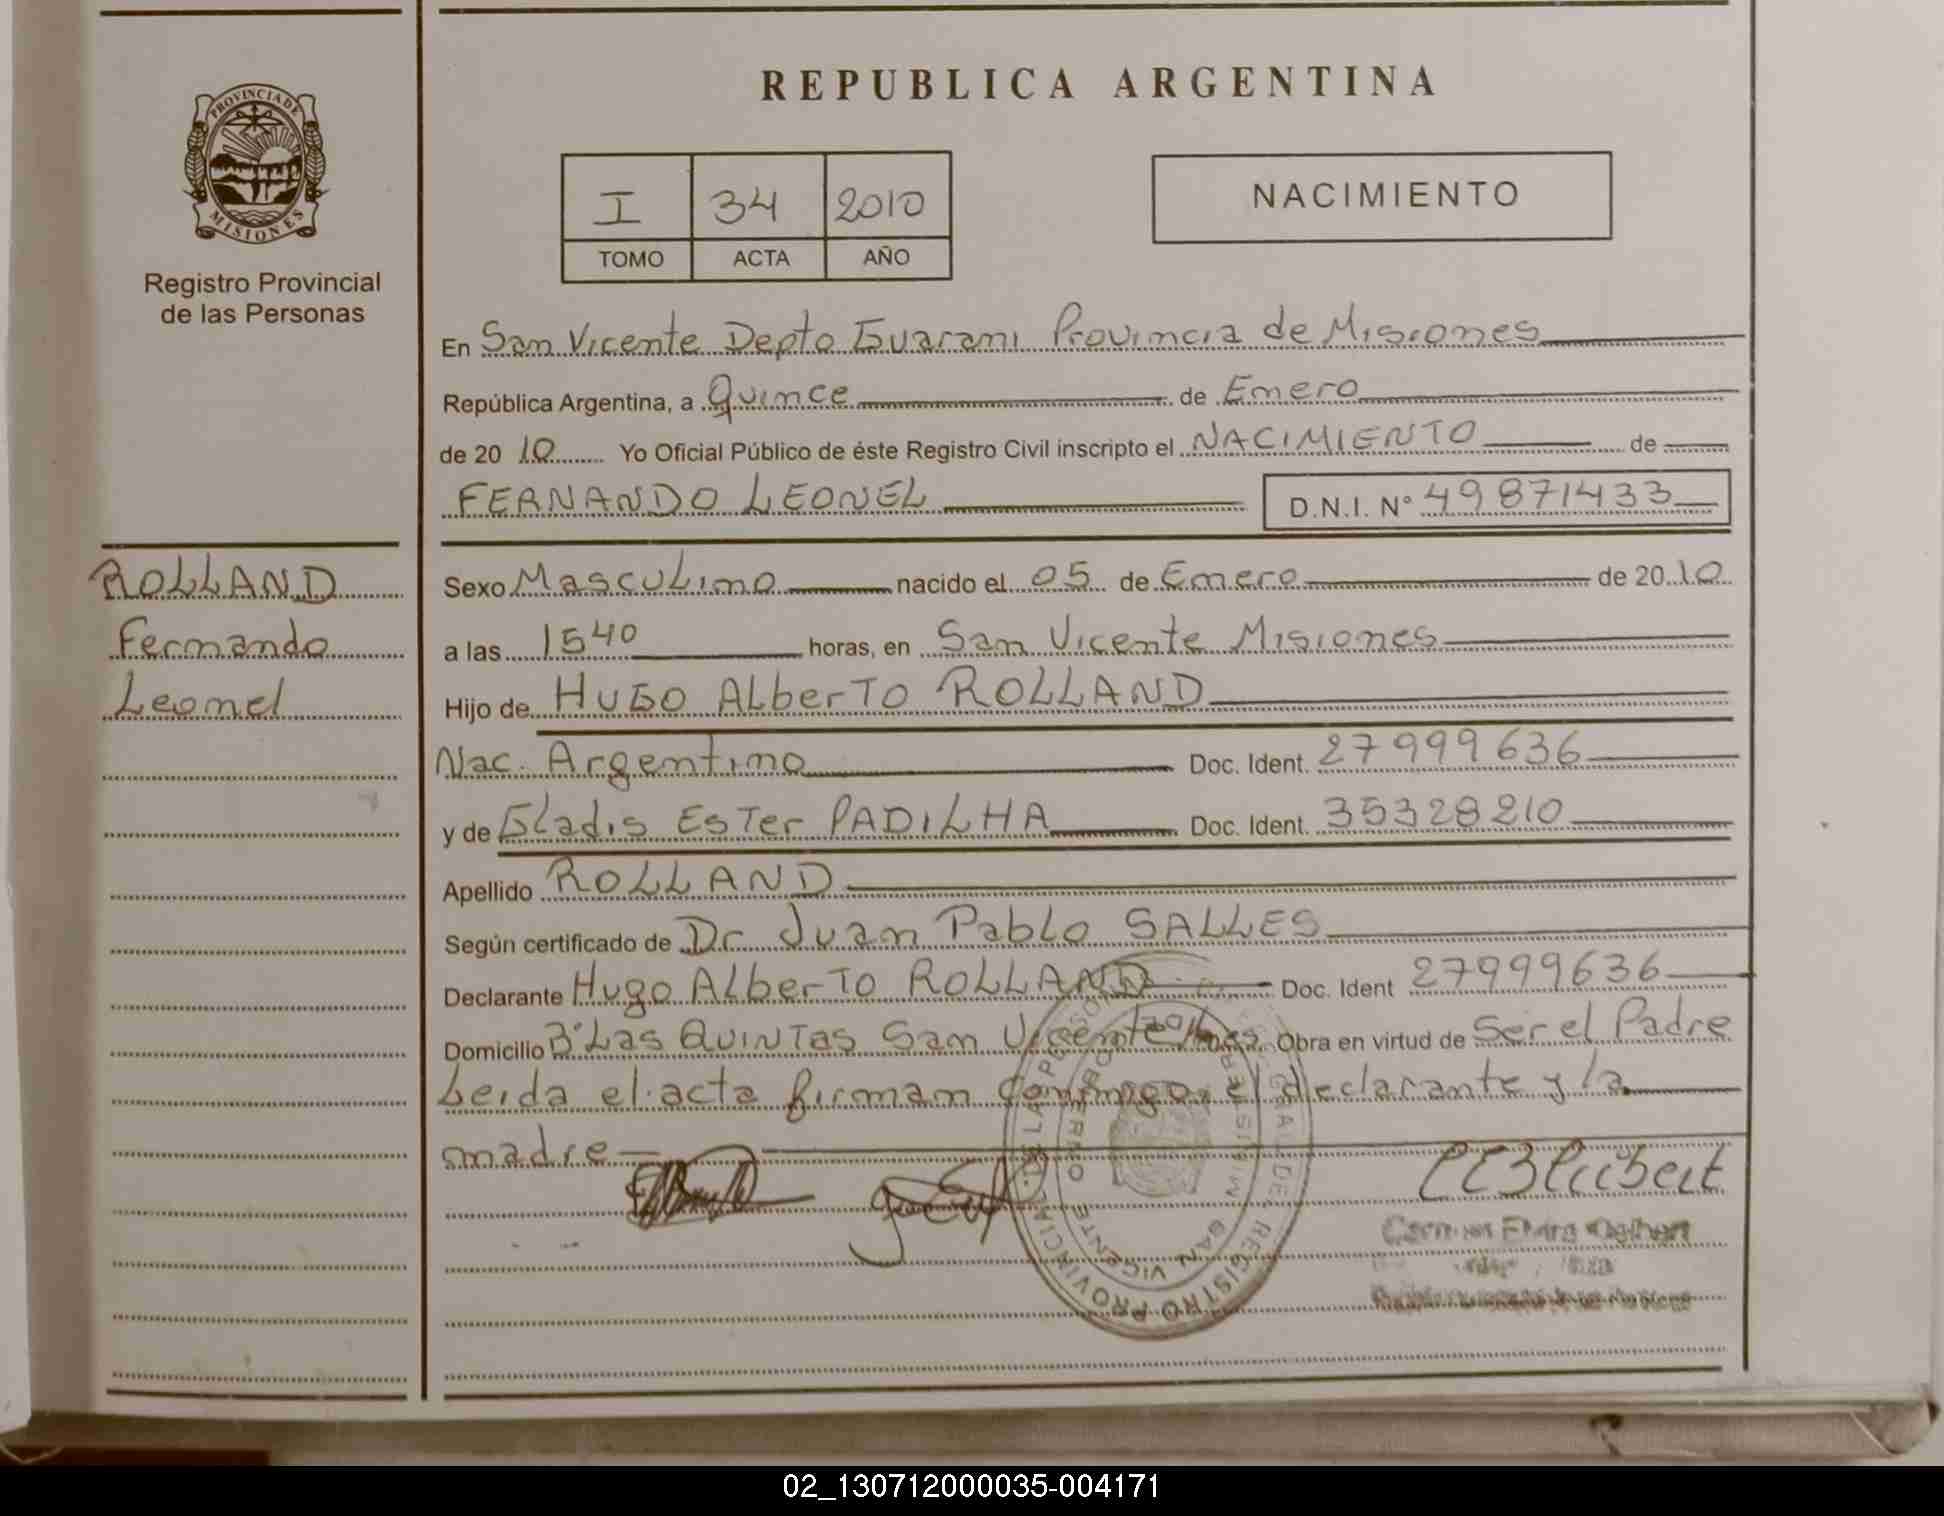 REPUBLICA ARGENTINA
PROVINCIA DE
MISIONES
Registro Provincial
de las Personas
I 34 2010
TOMO ACTA AÑO
NACIMIENTO
En San Vicente Depto Guarani Provincia de Misiones
República Argentina, a Quince de Enero
de 20 10 Yo Oficial Público de éste Registro Civil inscripto el NACIMIENTO de
FERNANDO LEONEL D.N.I. Nº 49871433
ROLLAND
Fernando
Leonel
Sexo Masculino nacido el 05 de Enero de 20 10
a las 15 40 horas, en San Vicente Misiones
Hijo de HUGO ALberTO ROLLAND
Nac. Argentino Doc. Ident. 27999636
y de Gladis EsTer PADILHA Doc. Ident. 35328210
Apellido ROLLAND
Según certificado de Dr Juan Pablo SALLES
Declarante Hugo ALberTO ROLLAND Doc. Ident 27999636
Domicilio Bº Las QUINTAS San Vicente Obra en virtud de Ser el Padre
Leida el acta firman conmigo, el declarante y la
madre
REGISTRO PROVINCIAL DE LAS PERSONAS
SAN VICENTE
02_130712000035-004171